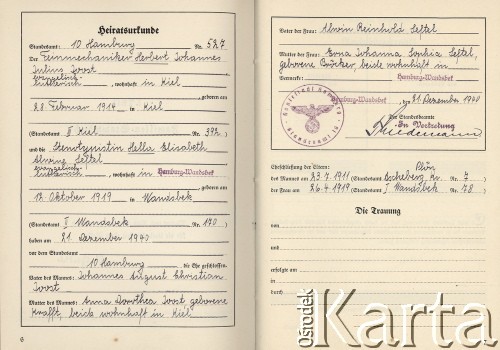 Heiratsurkunde
Standesamt: 10 Hamburg Nr. 527
Der Feinmechaniker Herbert Johannes
Julius Joost
evangelisch-
lutherisch, wohnhaft in Kiel
geboren am
28. Februar 1914 in Kiel
(Standesamt II Kiel Nr. 392)
und die Stenotypistin Hella Elisabeth
evangelisch-
lutherisch, wohnhaft in Hamburg-Wandsbek
geboren am
17. Oktober 1919 in Wandsbek
(Standesamt I Wandsbek Nr. 170)
haben am 21. Dezember 1940
vor dem Standesamt
10 Hamburg die Ehe geschlossen.
Vater des Mannes: Johannes August Christian
Joost
Mutter des Mannes: Anna Dorothea Joost geborene
Krafft, beide wohnhaft in Kiel
6
Vater der Frau: Alwin Reinhold
Mutter der Frau: Erna Johanna Sophie
geborene beide wohnhaft in
Vermerke: Hamburg-Wandsbek
Hamburg-Wandsbek, den 21. Dezember 1940
Der Standesbeamte
In Vertretung
Eheschließung der Eltern: Plön
des Mannes am 23.7.1911 (Standesamt Ascheberg, Kr. Nr. 7)
der Frau am 26.4.1919 (Standesamt I Wandsbek Nr. 78)
Die Trauung
von
und
erfolgte am in
durch
Ośrodek Karta